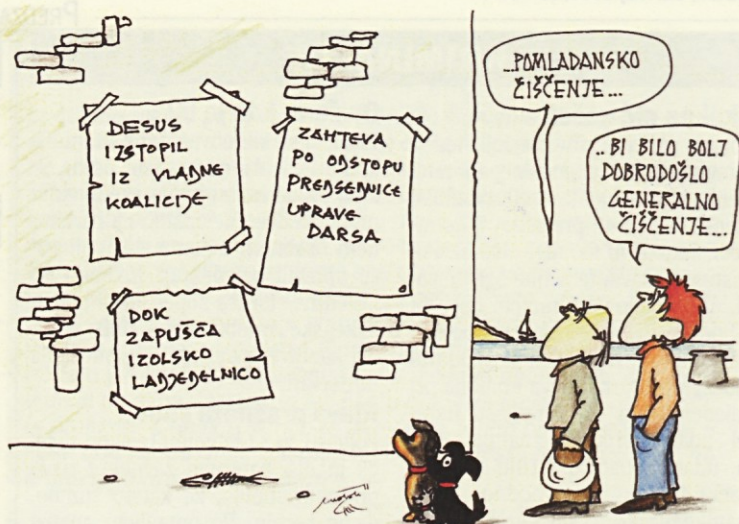 DESUS
IZSTOPIL
IZ VLADNE
KOALICIJE
ZAHTEVA
PO ODSTOPU
PREDSEDNICE
UPRAVE
DARSA
DOK
ZAPUŠČA
IZOLSKO
LADJEDELNICO
...POMLADANSKO
ČIŠČENJE...
...BI BILO BOLJ
DOBRODOŠLO
GENERALNO
ČIŠČENJE...